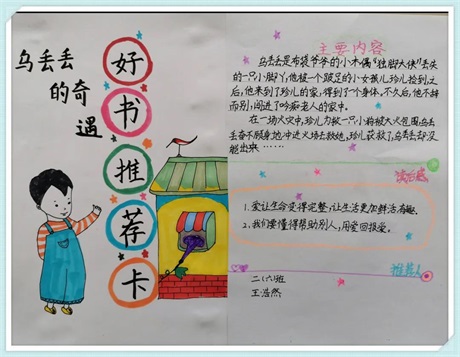 乌丢丢
的奇
遇
好
书
推
荐
卡
主要内容
乌丢丢是布袋爷爷的小木偶“独脚大侠”丢失
的一只小脚丫，他被一个跛足的小女孩儿珍儿捡到之
后，他来到了珍儿的家，得到了个身体，不久后，他不辞
而别，闯进了吟痴老人的家中。
在一场火灾中，珍儿为救一只小狗被大火包围乌丢
丢奋不顾身地冲进火场去救她，珍儿获救了，乌丢丢却没
能出来……
读后感
1.爱让生命变得完整，让生活更加鲜活有趣。
2.我们要懂得帮助别人，用爱回报爱。
推荐人
二（六）班
王浩然